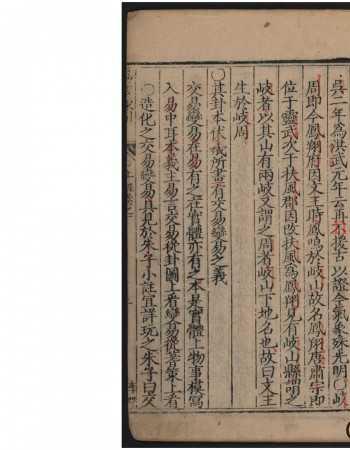 吳二年爲洪武元年云再不援古以證今氣象殊先明○岐
周即今鳳翔府因文王時鳳鳴於岐山故名鳳翔唐肅宗即
位于靈武次于扶風郡因改扶風爲鳳翔見有岐山縣謂之
岐者以其山有兩岐又謂之周者岐山下地名也故曰文王
生於岐周
○其卦本伏羲所畫有交易變易之義
交易變易在易有之在實體亦有之本是實體上物事模寫
入易中耳本義主易言交易從卦圖上看變易從蓍策上看
○造化之交易變易具見於朱子小註宜詳玩之朱子曰交